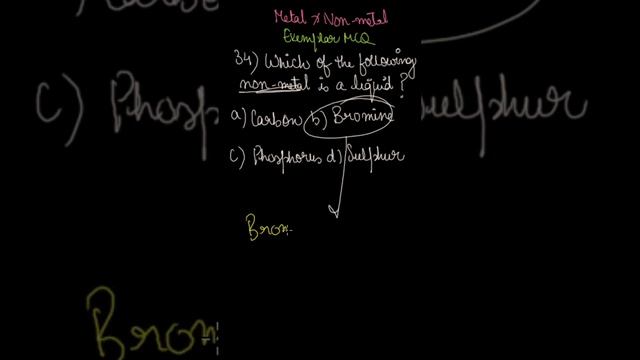 Metal & Non-metal
Exemplar MCQ
34) Which of the following
non-metal is a liquid?
a) Carbon b) Bromine
c) Phosphorus d) Sulphur
Brom